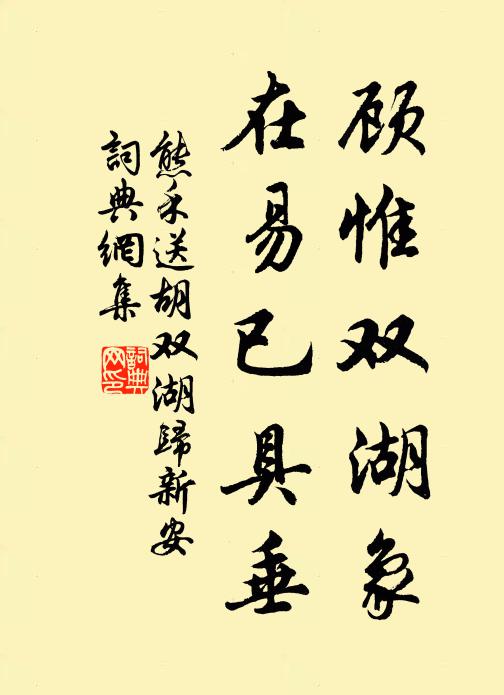 顾惟双湖象
在易已具垂
熊禾送胡双湖歸新安
詞典網集
詞典网印